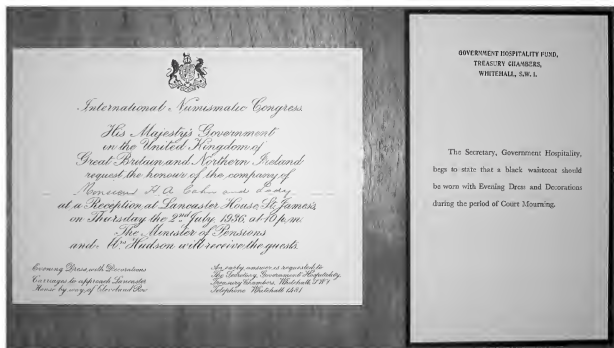 International Numismatic Congress
His Majesty's Government
in the United Kingdom of
Great Britain and Northern Ireland
request the honour of the company of
Monsieur H A Cahn and Lady
at a Reception at Lancaster House, St. James's,
on Thursday the 2nd July 1936, at 10 p.m.
The Minister of Pensions
and Mrs Hudson will receive the guests.
Evening Dress with Decorations
Carriages to approach Lancaster
House by way of Cleveland Row
An early answer is requested to
The Secretary, Government Hospitality,
Treasury Chambers, Whitehall, S.W.1.
Telephone Whitehall
GOVERNMENT HOSPITALITY FUND,
TREASURY CHAMBERS,
WHITEHALL, S.W. 1.
The Secretary, Government Hospitality,
begs to state that a black waistcoat should
be worn with Evening Dress and Decorations
during the period of Court Mourning.